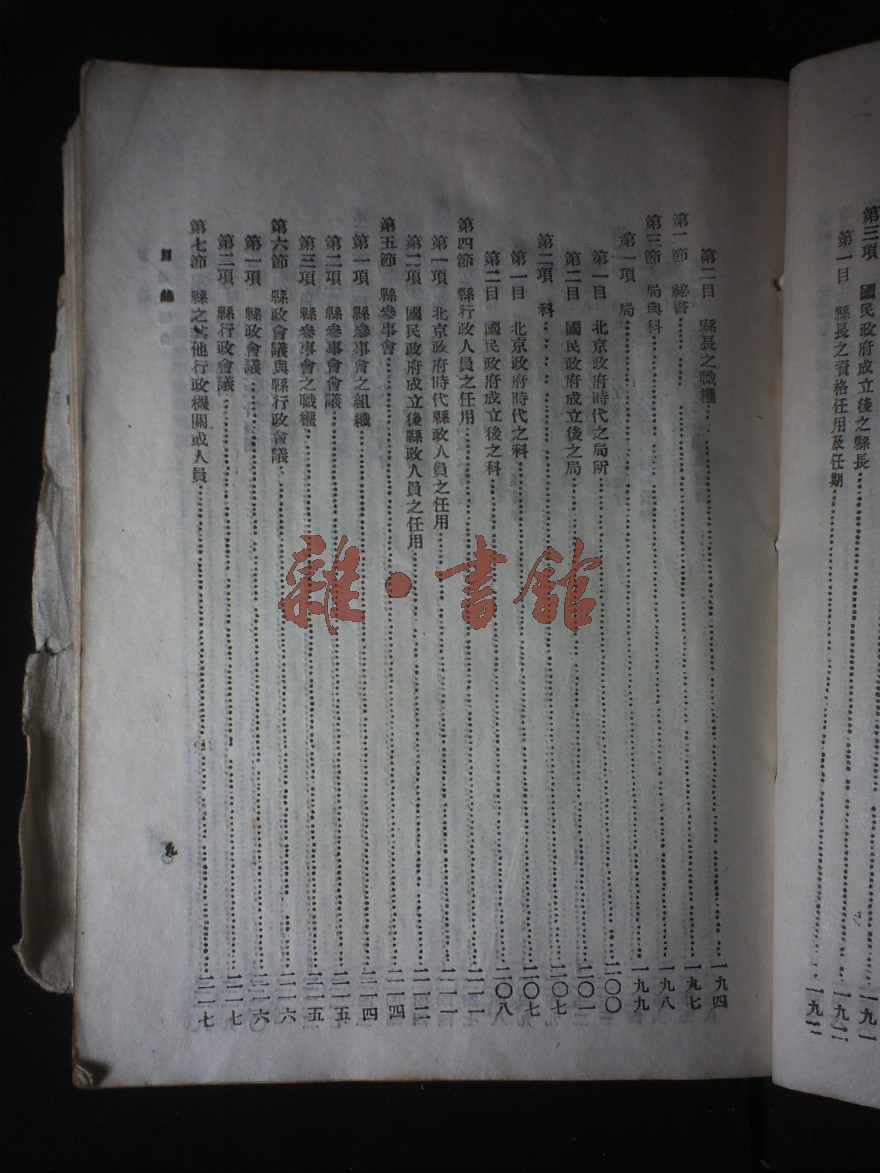 第三項　國民政府成立後之縣長……一九一
第一目　縣長之資格任用及任期……一九二
第二目　縣長之職權……一九四
第二節　祕書……一九七
第三節　局與科……一九八
第一項　局……一九九
第一目　北京政府時代之局所……二〇〇
第二目　國民政府成立後之局……二〇一
第二項　科……二〇七
第一目　北京政府時代之科……二〇七
第二目　國民政府成立後之科……二〇八
第四節　縣行政人員之任用……二一一
第一項　北京政府時代縣政人員之任用……二一一
第二項　國民政府成立後縣政人員之任用……二一二
第五節　縣參事會……二一四
第一項　縣參事會之組織……二一四
第二項　縣參事會會議……二一五
第三項　縣參事會之職權……二一五
第六節　縣政會議與縣行政會議……二一六
第一項　縣政會議……二一六
第二項　縣行政會議……二一七
第七節　縣之其他行政機關或人員……二一七
目錄
九
雜·書館